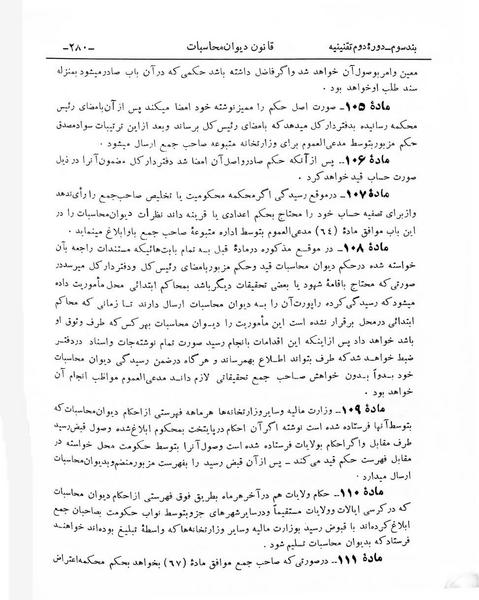 بند سوم ـ دورهٔ دوم تقنینیه قانون دیوان محاسبات ـ۲۸۰ـ
معین وامر بوصول آن خواهد شد و اگر فاضل داشته باشد حکمی که در آن باب صادر میشود بمنزله
سند طلب او خواهد بود .
مادهٔ ۱۰۵ـ صورت اصل حکم را ممیز نوشته خود امضا میکند پس از آن بامضای رئیس
محکمه رسانیده بدفتردار کل میدهد که بامضای رئیس کل برساند و بعد از این ترتیبات سواد مصدق
حکم مزبور بتوسط مدعی العموم برای وزارتخانه متبوعه صاحب جمع ارسال میشود .
مادهٔ ۱۰۶ـ پس از آنکه حکم صادر و اصل آن امضا شد دفتردار کل مضمون آنرا در ذیل
صورت حساب قید خواهد کرد .
مادهٔ ۱۰۷ـ در موقع رسیدگی اگر محکمه محکومیت یا تخلیص صاحب جمع را رأی ندهد
و از برای تصفیه حساب خود را محتاج بحکم اعدادی یا قرینه داند نظرات دیوان محاسبات را در
این باب موافق مادهٔ (۶۴) مدعی العموم بتوسط اداره متبوعهٔ صاحب جمع باو ابلاغ مینماید .
مادهٔ ۱۰۸ـ در موقع مذکوره در مادهٔ قبل به تمام بابت هائیکه مستندات راجعه بآن
خواسته شده در حکم دیوان محاسبات قید و حکم مزبور بامضای رئیس کل و دفتردار کل میرسد در
صورتی که محتاج باقامهٔ شهود یا بعضی تحقیقات دیگر باشد بمحاکم ابتدائی محل مأموریت داده
میشود که رسیدگی کرده راپورت آن را به دیوان محاسبات ارسال دارند تا زمانی که محاکم
ابتدائی در محل برقرار نشده است این مأموریت را دیوان محاسبات بهر کس که طرف وثوق او
باشد خواهد داد پس از اینکه این اقدامات بانجام رسید صورت تمام نوشته جات و اسناد در دفتر
ضبط خواهد شد که طرف بتواند اطلاع بهمرساند و هر گاه در ضمن رسیدگی دیوان محاسبات
خود بدواً بدون خواهش صاحب جمع تحقیقاتی لازم داند مدعی العموم مواظب انجام آن
خواهد بود .
مادهٔ ۱۰۹ـ وزارت مالیه و سایر وزارتخانه ها هر ماهه فهرستی از احکام دیوان محاسبات که
بتوسط آنها فرستاده شده است نوشته اگر آن احکام در پایتخت بمحکوم ابلاغ شده وصول قبض رسید
طرف مقابل و اگر احکام بولایات فرستاده شده است وصول آنرا بتوسط حکومت محل خواسته در
مقابل فهرست حکم قید می کند ـ پس از آن قبض رسید را بفهرست مزبور منضم و بدیوان محاسبات
ارسال میدارد .
مادهٔ ۱۱۰ـ حکام ولایات هم در آخر هر ماه بطریق فوق فهرستی از احکام دیوان محاسبات
که در کرسی ایالات و ولایات مستقیماً و در سایر شهرهای جزو بتوسط نواب حکومت بصاحبان جمع
ابلاغ کرده اند با قبوض رسید بوزارت مالیه و سایر وزارتخانه ها که واسطهٔ تبلیغ بوده اند خواهند
فرستاد که بدیوان محاسبات تسلیم شود .
مادهٔ ۱۱۱ـ در صورتی که صاحب جمع موافق مادهٔ (۶۷) بخواهد بحکم محکمه اعتراض